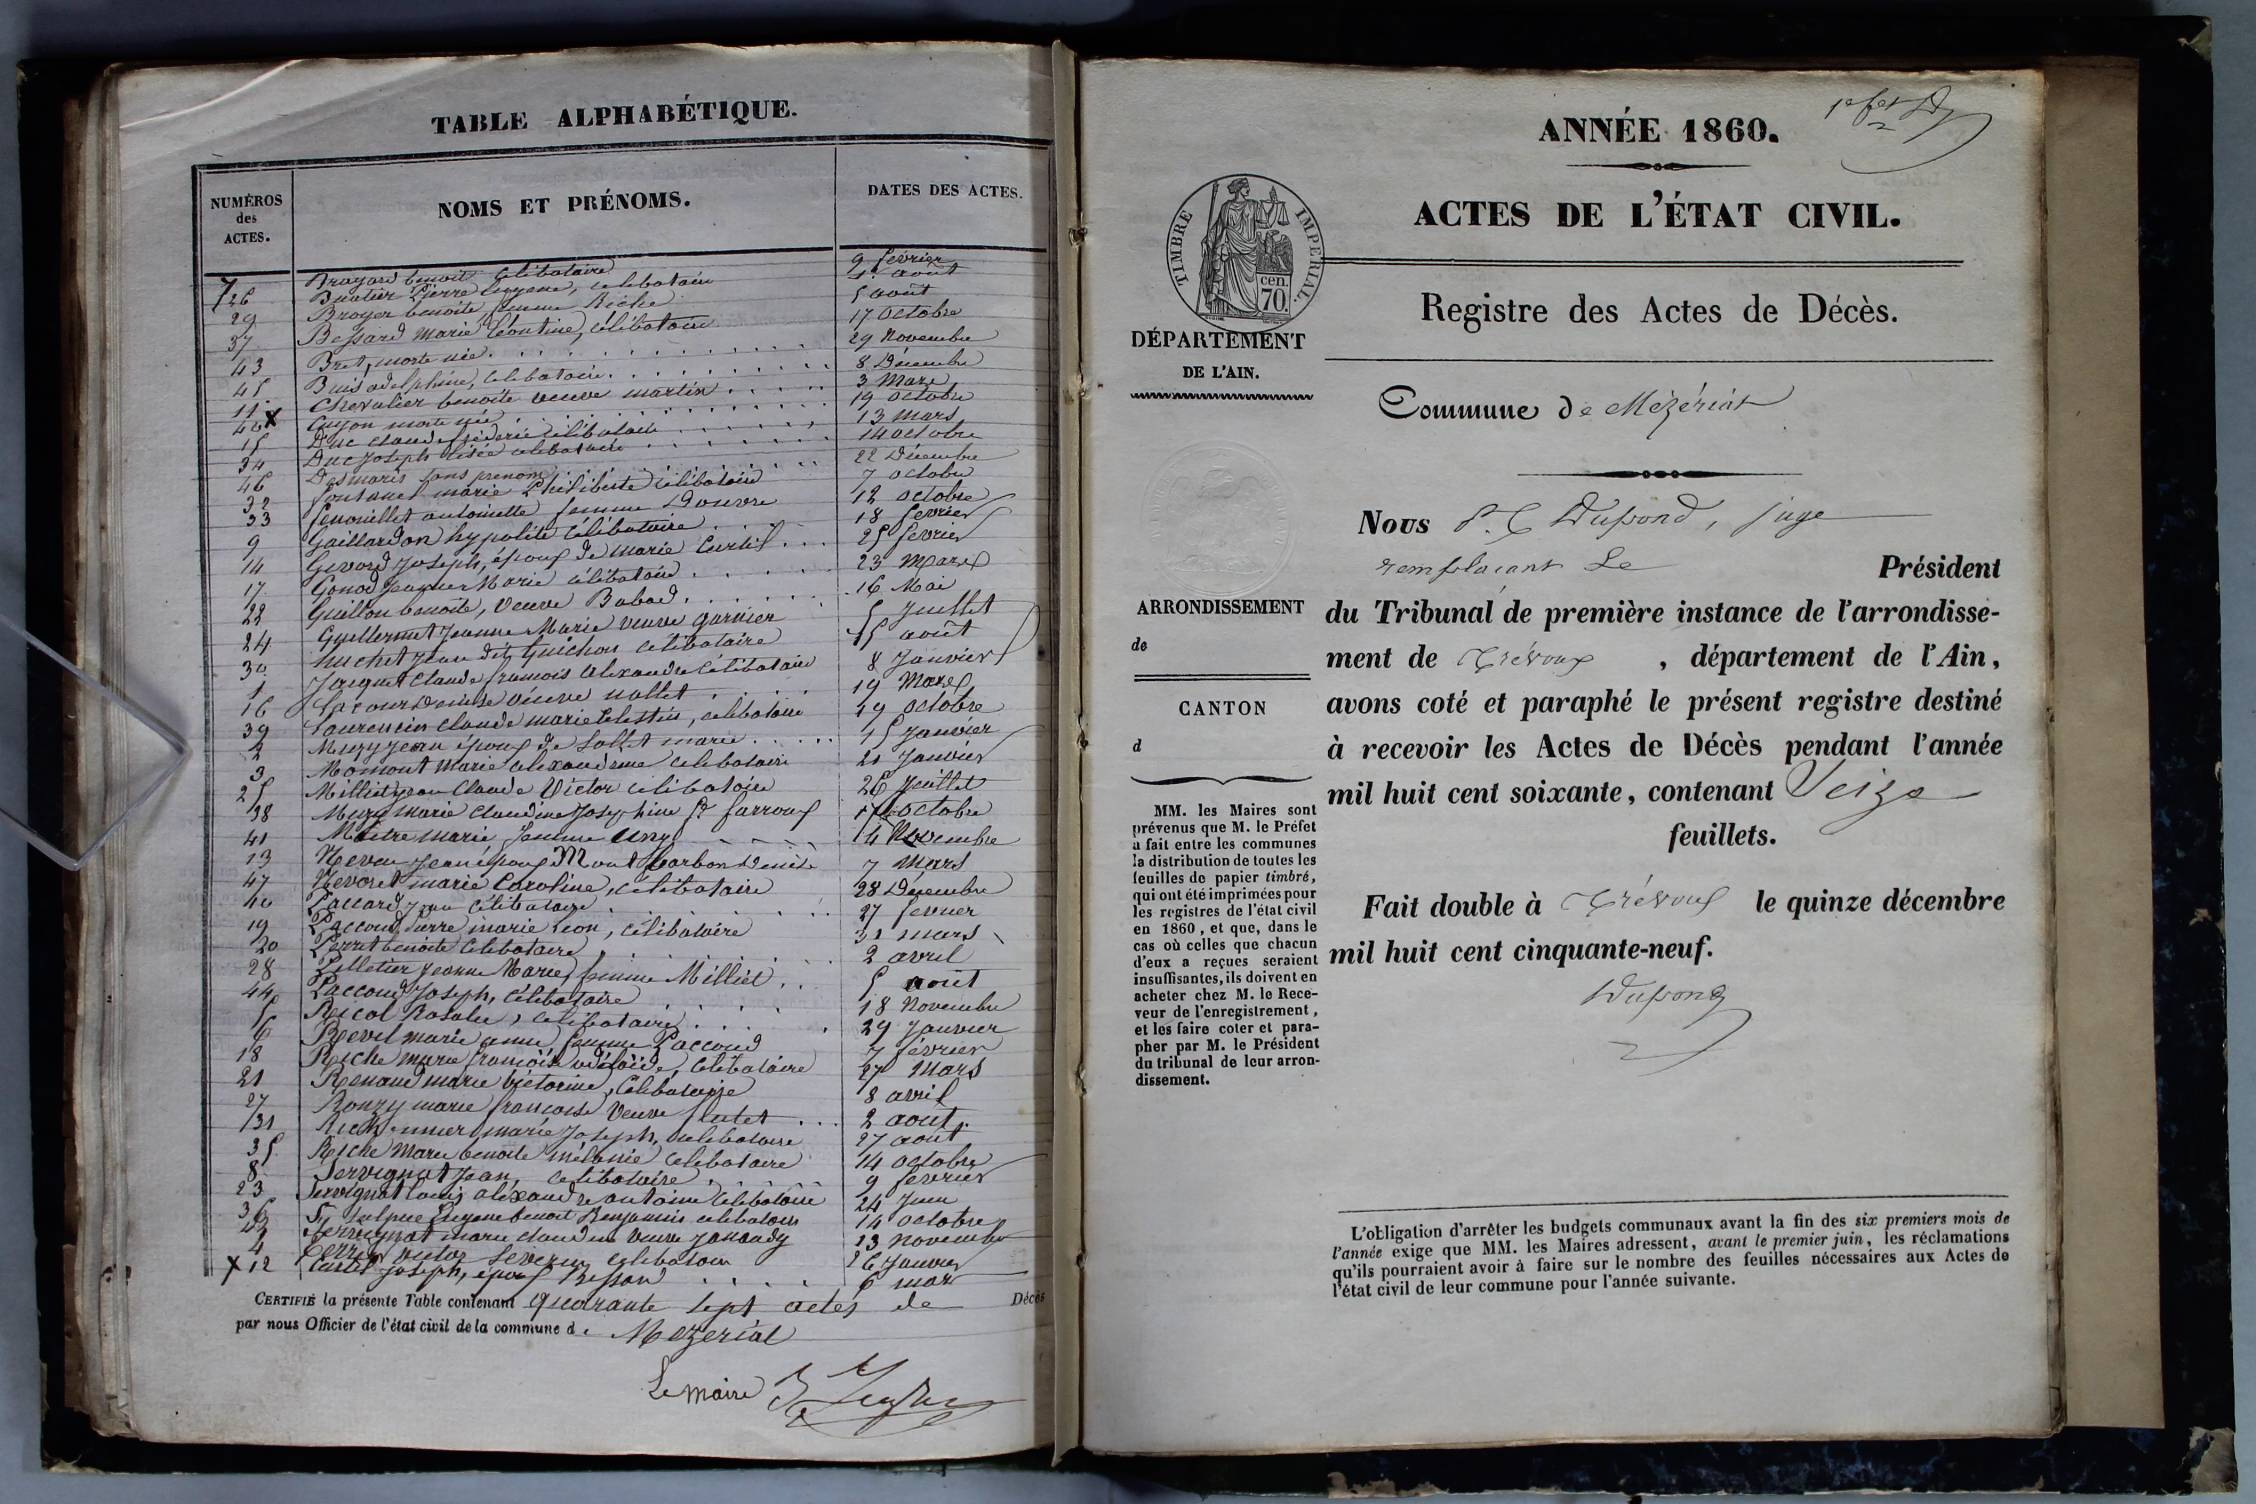 TABLE ALPHABÉTIQUE.
NUMÉROS
des
ACTES.
NOMS ET PRÉNOMS.
DATES DES ACTES.
7 Broyard benoit célibataire 9 février
26 Buatier Pierre Eugene, célibataire 1er août
29 Broyer benoite, femme Riche 5 août
37 Bessard Marie Léontine, célibataire 17 Octobre
43 Bret, morte née 29 Novembre
45 Buis adelphine, célibataire 8 Décembre
11 Chevalier benoite veuve martin 3 Mars
40 X Guyon morte née 19 octobre
15 Duc claude célibataire 13 mars
34 Duc Joseph célibataire 14 octobre
46 Desmaris sans prenom 22 Décembre
32 fontanel marie Philiberte célibataire 7 octobre
33 fenouillet antoinette femme Douvre 12 octobre
9 Gaillardon hypolite célibataire 18 fevrier
14 Gevord Joseph, époux de marie Curtil 25 fevrier
17 Gonod Jeanne Marie célibataire 23 Mars
22 Guillon benoite, veuve Babad 16 Mai
24 Guillermet Jeanne Marie veuve garnier 5 Juillet
30 huchet Jean dit Guichon célibataire 15 août
1 Jacquet Claude francois alexandre célibataire 8 Janvier
16 Lacour Denise veuve nallet 19 Mars
39 Laurencin claude marie Celestin, célibataire 19 octobre
2 Mury Jean époux de Lollet marie 15 Janvier
3 Momont Marie alexandrine célibataire 21 Janvier
25 Milliet Jean Claude Victor célibataire 26 Juillet
38 Mury marie Claudine Josephine fe farroux 17 octobre
41 Maitre marie femme 14 Novembre
13 Neveu Jean époux Mont Carbon Denise 7 Mars
47 Nevoret marie Caroline, célibataire 28 Décembre
10 Paccard Jean célibataire 27 fevrier
19 Paccoud Pierre marie Leon, célibataire 31 mars
20 Perret benoite célibataire 2 avril
28 Pelletier Jeanne Marie, femme Milliet 5 août
44 Paccoud Joseph, célibataire 18 Novembre
5 Recol Rosalie, célibataire 29 Janvier
6 Revel marie anne femme Paccoud 7 février
18 Reiche marie françoise adélaïde, célibataire 27 Mars
21 Renaud marie victorine, célibataire 8 avril
27 Ronzy marie françoise veuve 2 août
31 marie Joseph, célibataire 27 août
35 Reiche Marie benoite mélanie célibataire 14 octobre
8 Servignat Jean, célibataire 9 fevrier
23 Servignat Louis alexandre antoine célibataire 24 Juin
36 St Sulpice Eugene benoit Benjamin célibataire 14 octobre
42 Servignat marie claudine veuve 13 novembre
4 victor severin célibataire 26 Janvier
X 12 Curtil Joseph, époux Besson 6 mars
CERTIFIÉ la présente Table contenant quarante sept actes de Décès
par nous Officier de l'état civil de la commune de Mezeriat
Le maire
1er fet
ANNÉE 1860.
ACTES DE L'ÉTAT CIVIL.
TIMBRE IMPÉRIAL.
cen.
70.
Registre des Actes de Décès.
DÉPARTEMENT
DE L'AIN.
Commune de Mézériat
Nous P. C Dupond, juge
remplaçant Le Président
ARRONDISSEMENT
de
CANTON
d
du Tribunal de première instance de l'arrondisse-
ment de Trévoux, département de l'Ain,
avons coté et paraphé le présent registre destiné
à recevoir les Actes de Décès pendant l'année
mil huit cent soixante, contenant Seize
feuillets.
MM. les Maires sont
prévenus que M. le Préfet
a fait entre les communes
la distribution de toutes les
feuilles de papier timbré,
qui ont été imprimées pour
les registres de l'état civil
en 1860, et que, dans le
cas où celles que chacun
d'eux a reçues seraient
insuffisantes, ils doivent en
acheter chez M. le Rece-
veur de l'enregistrement,
et les faire coter et para-
pher par M. le Président
du tribunal de leur arron-
dissement.
Fait double à Trévoux le quinze décembre
mil huit cent cinquante-neuf.
Dupond
L'obligation d'arrêter les budgets communaux avant la fin des six premiers mois de
l'année exige que MM. les Maires adressent, avant le premier juin, les réclamations
qu'ils pourraient avoir à faire sur le nombre des feuilles nécessaires aux Actes de
l'état civil de leur commune pour l'année suivante.